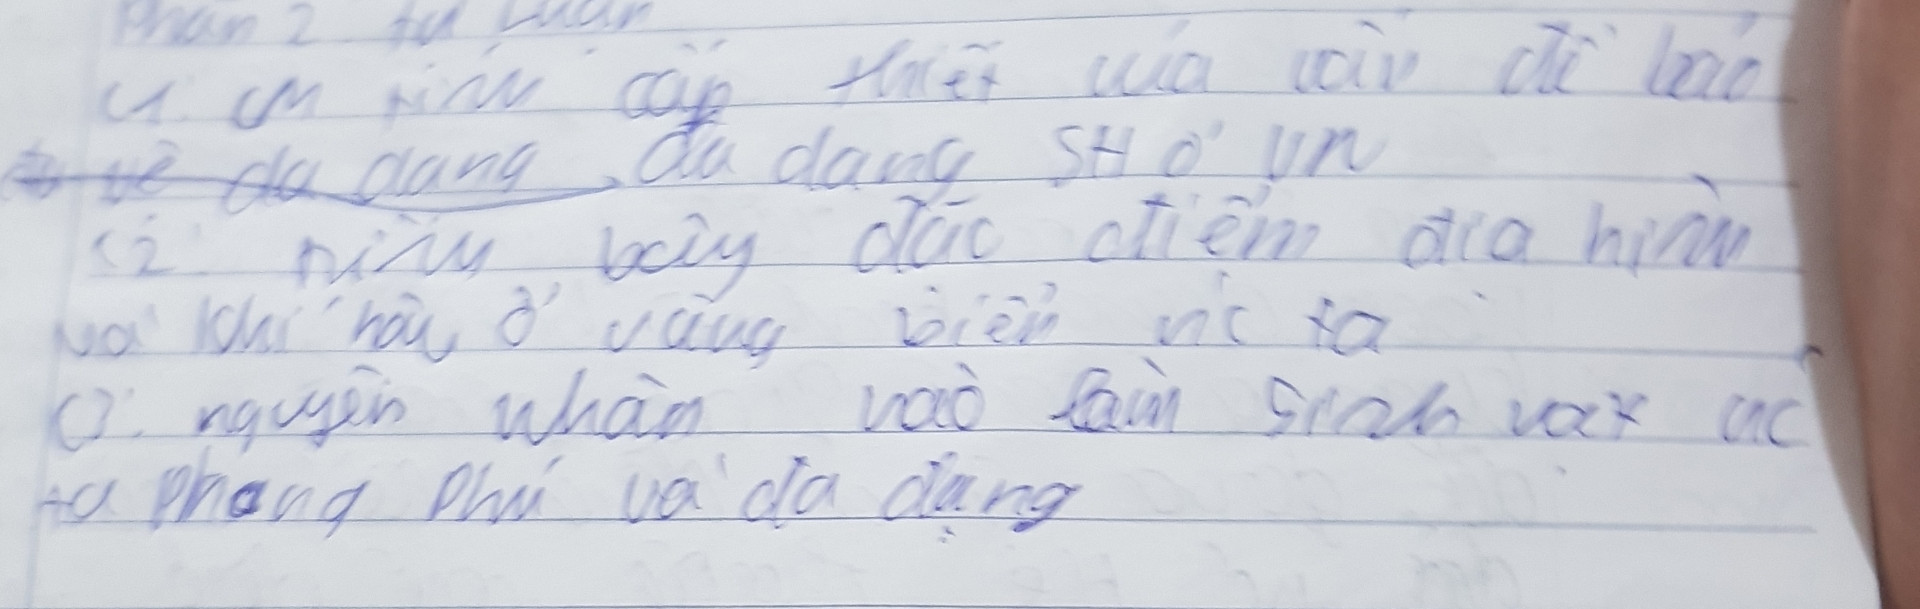 Phần 2 tự Luận
C1. CM tính cấp thiết của vấn đề bảo
vệ đa dạng đa dạng SH ở VN
C2 trình bày đặc điểm địa hình
và khí hậu ở vùng biển nc ta
C3. nguyên nhân nào làm sinh vật nc
ta phong phú và đa dạng